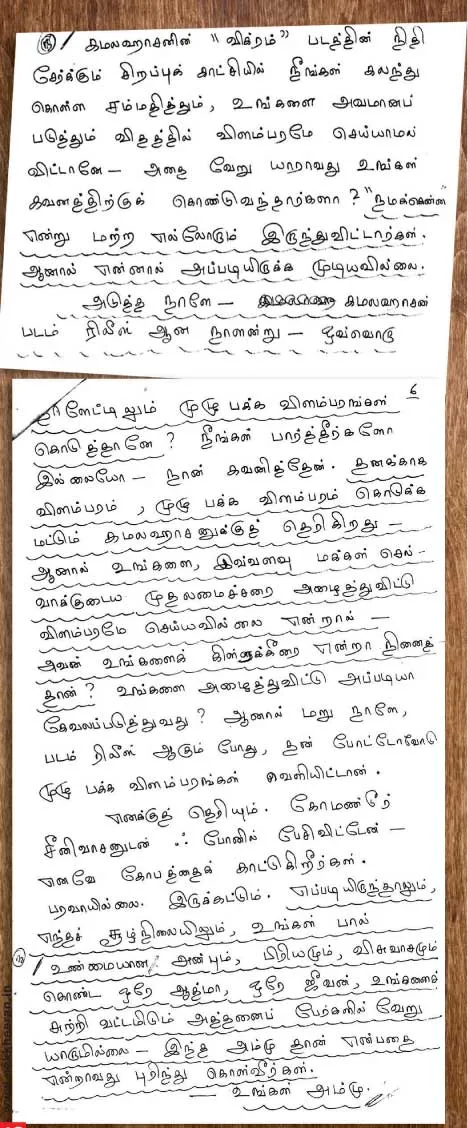 கமலஹாசனின் "விக்ரம்" படத்தின் நிதி
சேர்க்கும் சிறப்புக் காட்சியில் நீங்கள் கலந்து
கொள்ள சம்மதித்தும், உங்களை அவமானப்
படுத்தும் விதத்தில் விளம்பரமே செய்யாமல்
விட்டானே – அதை வேறு யாராவது உங்கள்
கவனத்திற்குக் கொண்டுவந்தார்களா? "நமக்கென்ன"
என்று மற்ற எல்லோரும் இருந்துவிட்டார்கள்.
ஆனால் என்னால் அப்படியிருக்க முடியவில்லை.
அடுத்த நாளே – கமலஹாசன்
படம் ரிலீஸ் ஆன நாளன்று – ஒவ்வொரு
6
டூளேட்டிலும் முழு பக்க விளம்பரங்கள்
கொடுத்தானே? நீங்கள் பார்த்தீர்களோ
இல்லையோ – நான் கவனித்தேன். தனக்காக
விளம்பரம், முழு பக்க விளம்பரம் கொடுக்க
மட்டும் கமலஹாசனுக்குத் தெரிகிறது –
ஆனால் உங்களை, இவ்வளவு மக்கள் செல்-
வாக்குடைய முதலமைச்சரை அழைத்துவிட்டு
விளம்பரமே செய்யவில்லை என்றால் –
அவன் உங்களைக் கிள்ளுக்கீரை என்றா நினைத்
தான்? உங்களை அழைத்துவிட்டு அப்படியா
கேவலப்படுத்துவது? ஆனால் மறு நாளே,
படம் ரிலீஸ் ஆகும் போது, தன் போட்டோவோடு
முழு பக்க விளம்பரங்கள் வெளியிட்டான்.
எனக்குத் தெரியும். கோமண்டீர்
சீனிவாசனுடன் ஃபோனில் பேசிவிட்டேன் –
எனவே கோபத்தைக் காட்டுகிறீர்கள்.
பரவாயில்லை. இருக்கட்டும். எப்படியிருந்தாலும்,
எந்தச் சூழ்நிலையிலும், உங்கள் பால்
உண்மையான அன்பும், பிரியமும், விசுவாசமும்
கொண்ட ஒரே ஆத்மா, ஒரே ஜீவன், உங்களைச்
சுற்றி வட்டமிடும் அத்தனைப் பேர்களில் வேறு
யாருமில்லை – இந்த அம்மு தான் என்பதை
என்றாவது புரிந்து கொள்வீர்கள்.
– உங்கள் அம்மு.